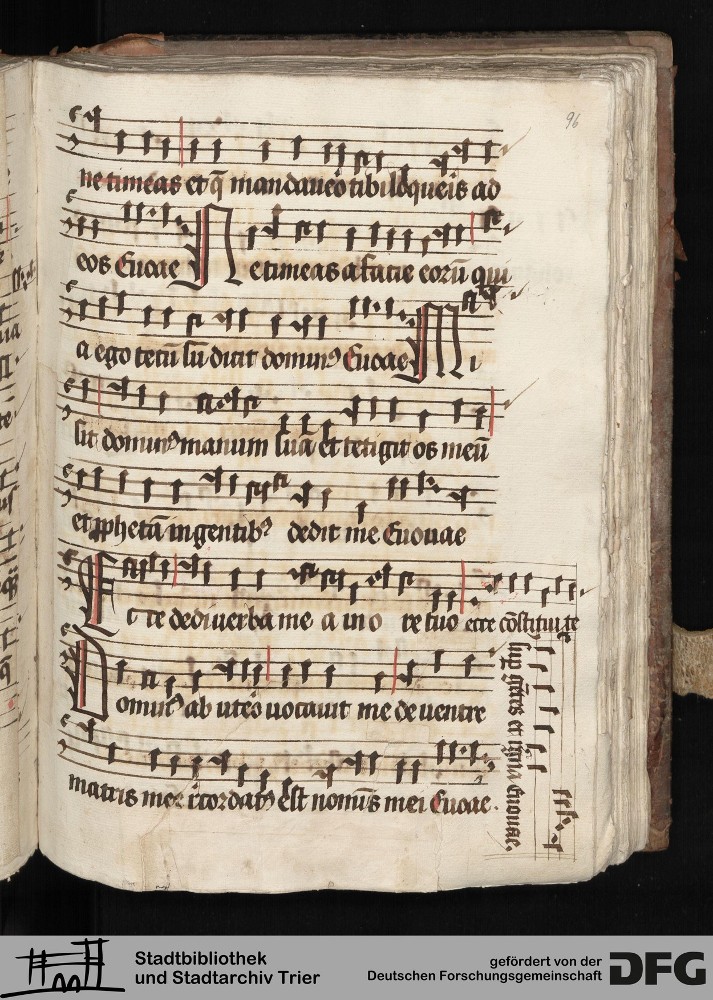 96
ne timeas et q̄ mandaueō tibi loq̄ueis ad
eos Euoae Ne timeas a facie eorū qui
a ego tecū sū dicit domin⁹ Euoae Mi
sit domin⁹ manum suā et tetigit os meū
et ꝓphetā in gentib⁹ dedit me Euouae
Ecce dedi uerba mea in o re tuo ecce cōstitui te
sup gētes et regna Euouae.
Domin⁹ ab uteō uocauit me de uentre
matris mee recordat⁹ est nominis mei Euoae.
Stadtbibliothek
und Stadtarchiv Trier
gefördert von der
Deutschen Forschungsgemeinschaft
DFG